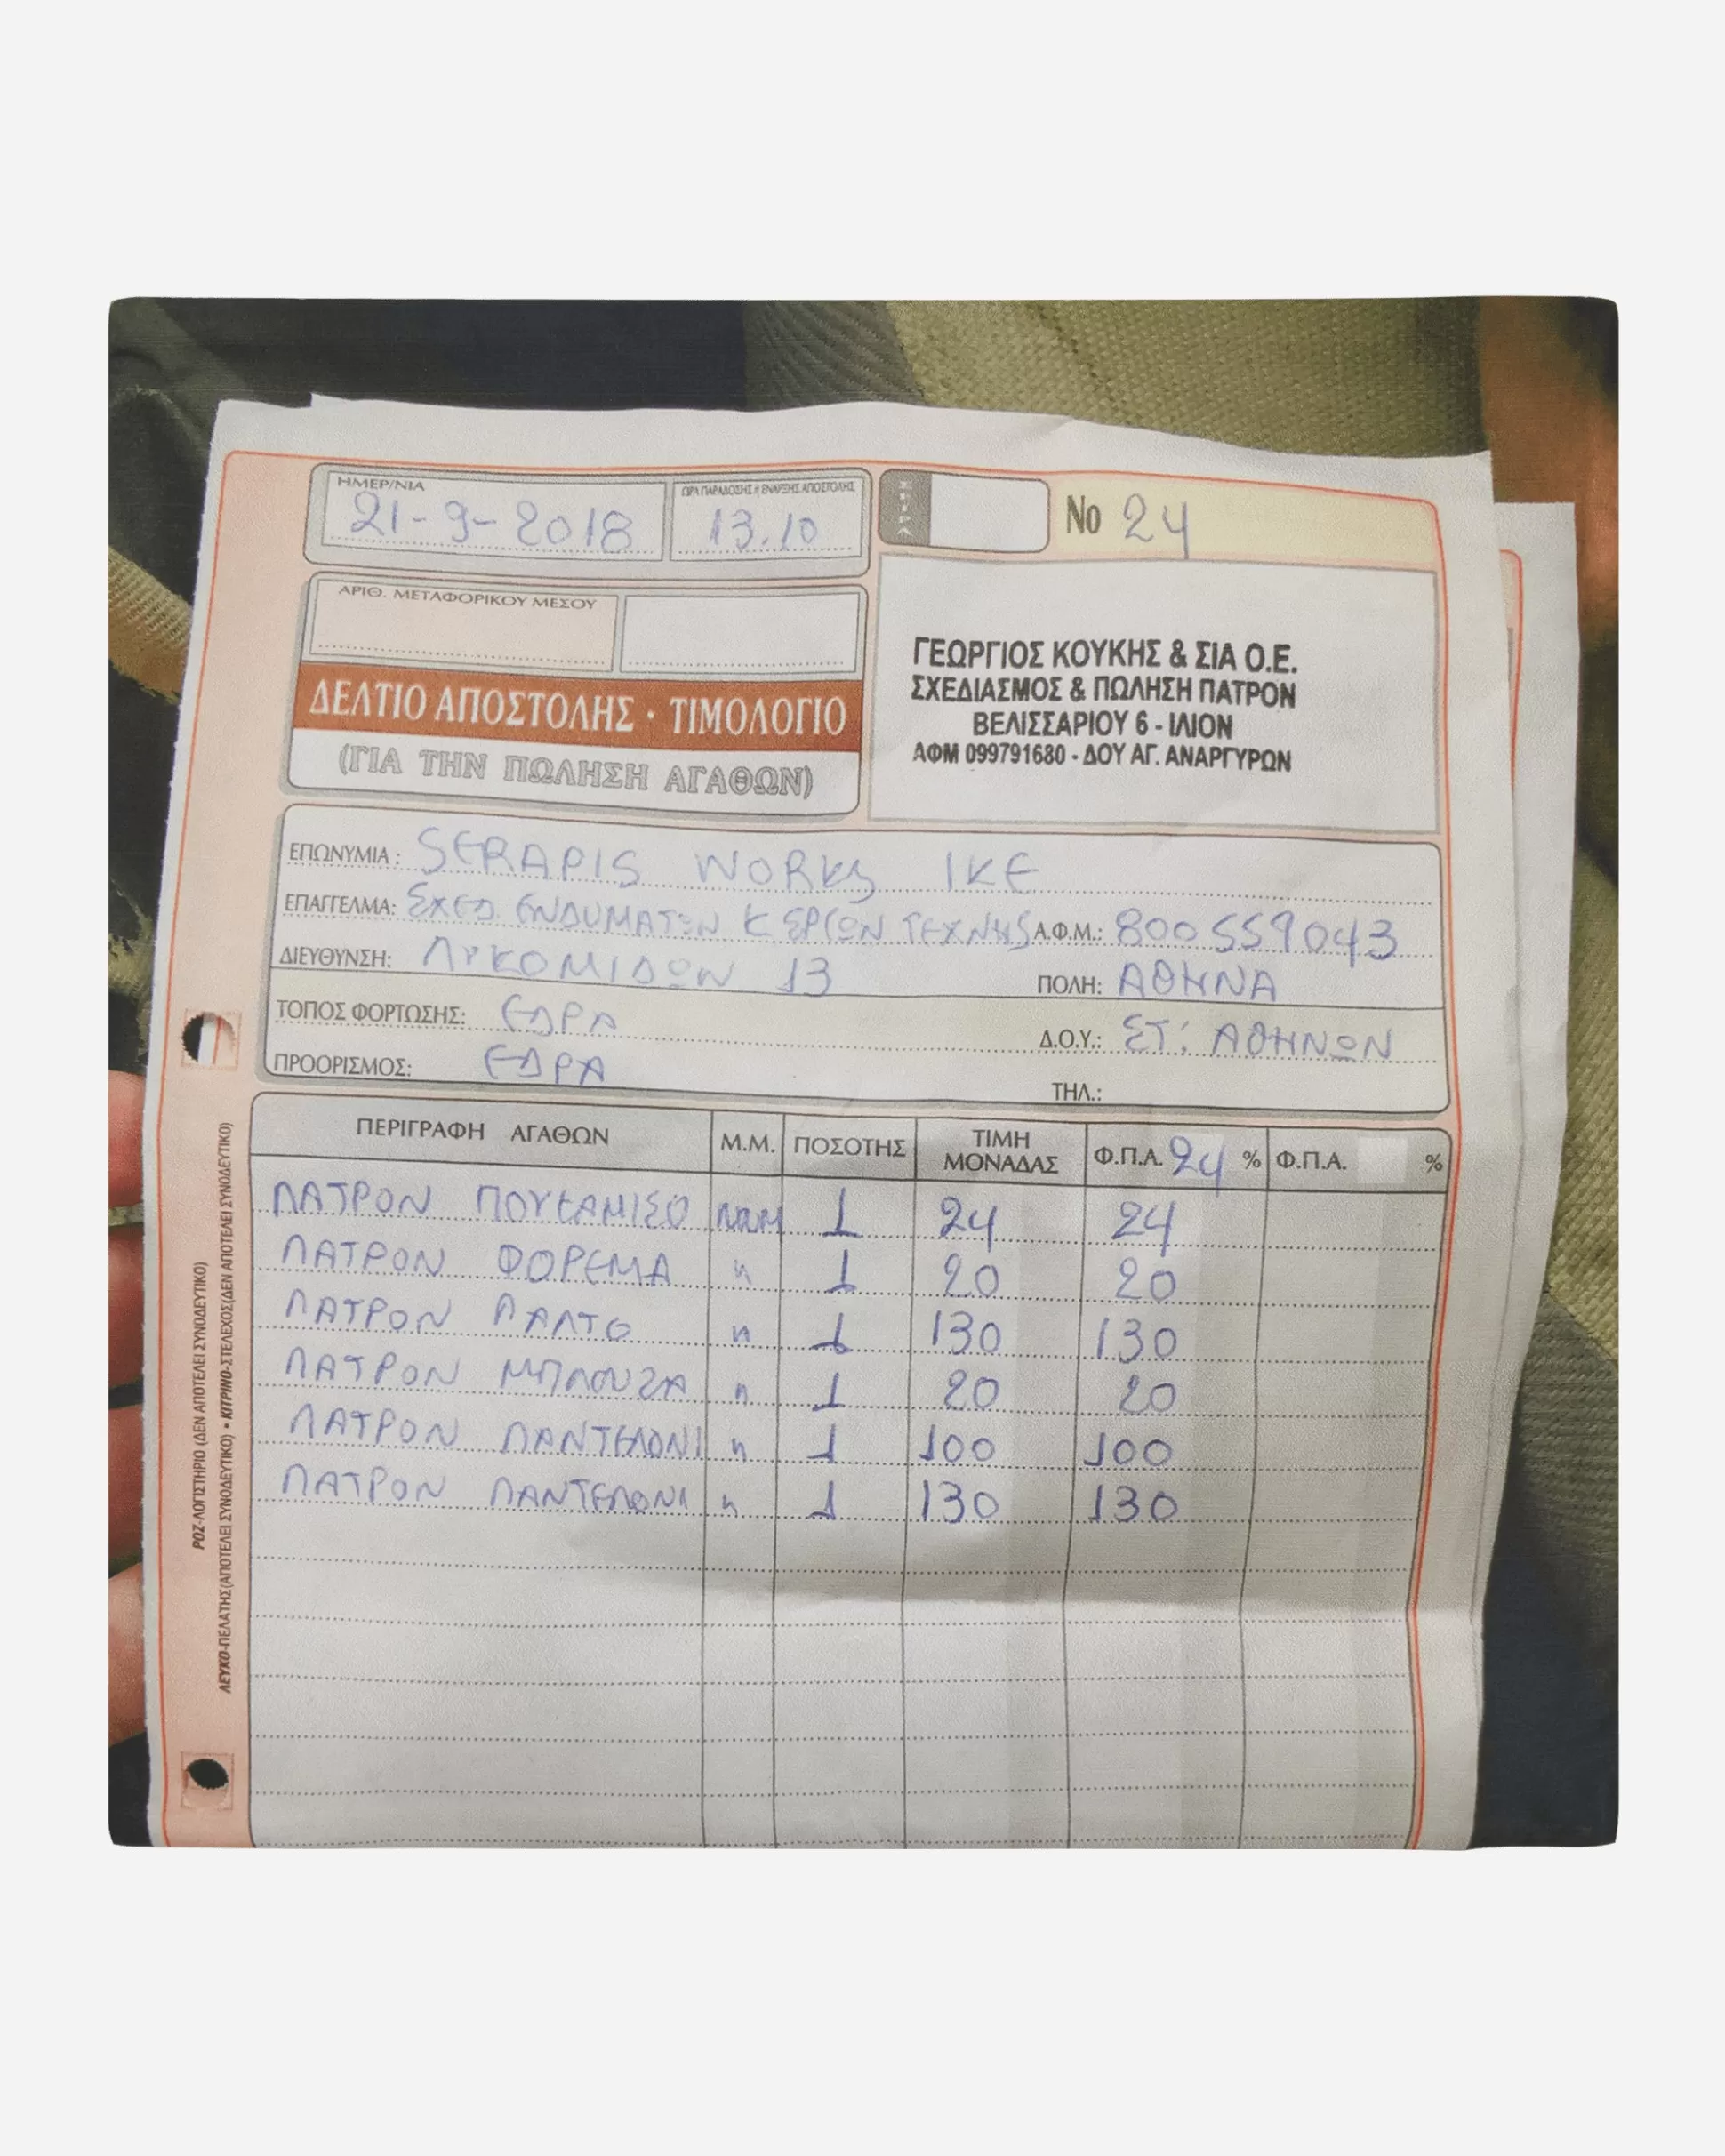 ΗΜΕΡ/ΝΙΑ 21-9-2018
ΩΡΑ ΠΑΡΑΔΟΣΗΣ ή ΕΝΑΡΞΗΣ ΑΠΟΣΤΟΛΗΣ 13.10
ΣΕΙΡΑ
Νο 24
ΑΡΙΘ. ΜΕΤΑΦΟΡΙΚΟΥ ΜΕΣΟΥ
ΔΕΛΤΙΟ ΑΠΟΣΤΟΛΗΣ · ΤΙΜΟΛΟΓΙΟ
(ΓΙΑ ΤΗΝ ΠΩΛΗΣΗ ΑΓΑΘΩΝ)
ΓΕΩΡΓΙΟΣ ΚΟΥΚΗΣ & ΣΙΑ Ο.Ε.
ΣΧΕΔΙΑΣΜΟΣ & ΠΩΛΗΣΗ ΠΑΤΡΟΝ
ΒΕΛΙΣΣΑΡΙΟΥ 6 - ΙΛΙΟΝ
ΑΦΜ 099791680 - ΔΟΥ ΑΓ. ΑΝΑΡΓΥΡΩΝ
ΕΠΩΝΥΜΙΑ: SERAPIS WORKS ΙΚΕ
ΕΠΑΓΓΕΛΜΑ: ΣΧΕΔ. ΕΝΔΥΜΑΤΩΝ Κ ΕΡΓΩΝ ΤΕΧΝΗΣ Α.Φ.Μ.: 800559043
ΔΙΕΥΘΥΝΣΗ: ΛΥΚΟΜΙΔΩΝ 13 ΠΟΛΗ: ΑΘΗΝΑ
ΤΟΠΟΣ ΦΟΡΤΩΣΗΣ: ΕΔΡΑ Δ.Ο.Υ.: ΣΤ' ΑΘΗΝΩΝ
ΠΡΟΟΡΙΣΜΟΣ: ΕΔΡΑ ΤΗΛ.:
ΠΕΡΙΓΡΑΦΗ ΑΓΑΘΩΝ Μ.Μ. ΠΟΣΟΤΗΣ ΤΙΜΗ ΜΟΝΑΔΑΣ Φ.Π.Α. 24 % Φ.Π.Α. %
ΠΑΤΡΟΝ ΠΟΥΚΑΜΙΣΟ 1 24 24
ΠΑΤΡΟΝ ΦΟΡΕΜΑ " 1 20 20
ΠΑΤΡΟΝ ΠΑΛΤΟ " 1 130 130
ΠΑΤΡΟΝ ΜΠΛΟΥΖΑ " 1 20 20
ΠΑΤΡΟΝ ΠΑΝΤΕΛΟΝΙ " 1 100 100
ΠΑΤΡΟΝ ΠΑΝΤΕΛΟΝΙ " 1 130 130
ΡΟΖ-ΛΟΓΙΣΤΗΡΙΟ (ΔΕΝ ΑΠΟΤΕΛΕΙ ΣΥΝΟΔΕΥΤΙΚΟ)
ΛΕΥΚΟ-ΠΕΛΑΤΗΣ(ΑΠΟΤΕΛΕΙ ΣΥΝΟΔΕΥΤΙΚΟ) • ΚΙΤΡΙΝΟ-ΣΤΕΛΕΧΟΣ(ΔΕΝ ΑΠΟΤΕΛΕΙ ΣΥΝΟΔΕΥΤΙΚΟ)